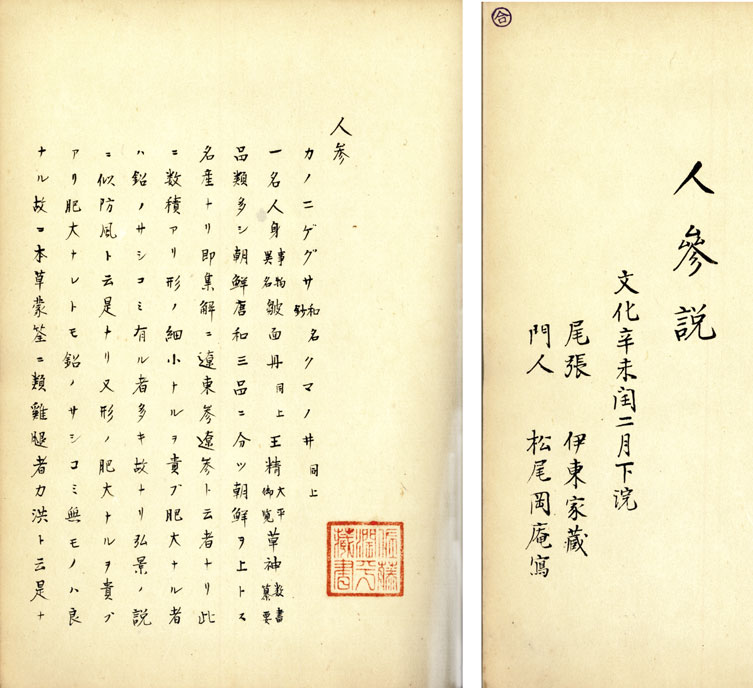 合
人參説
文化辛未閏二月下浣
尾張 伊東家蔵
門人 松尾岡庵寫
人参
カノニゲグサ和名鈔クマノ井同上
一名人身事物異名皺面丹同上王精大平御覧草神
品類多シ朝鮮唐和三品ニ分ツ朝鮮ヲ上トス
名産ナリ即集解ニ遼東参遼参ト云者ナリ此
ニ数積アリ形ノ細小ナルヲ貴ブ肥大ナル者
ハ鉛ノサシコミ有ル者多キ故ナリ弘景ノ説
ニ似防風ト云是ナリ又形ノ肥大ナルヲ貴ブ
アリ肥大ナレトモ鉛ノサシコミ無モノハ良
ナル故コ本草蒙筌ニ類雞腿者力洪ト云是ナ
佐藤潤平蔵書